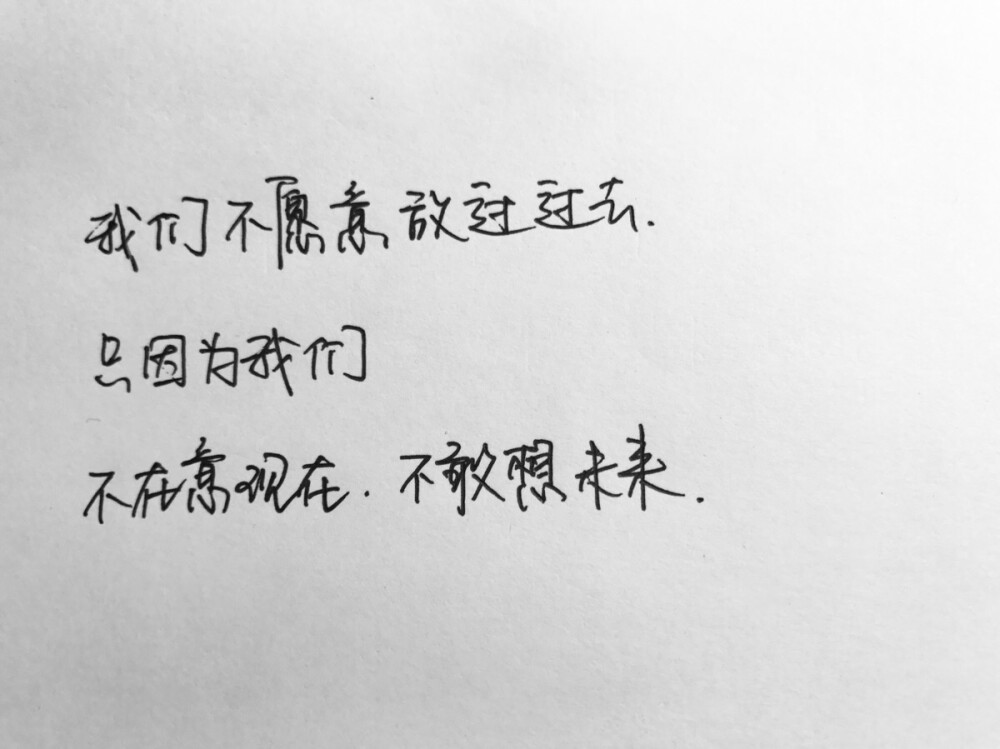 我们不愿意放过过去.
只因为我们
不在意现在.不敢想未来.